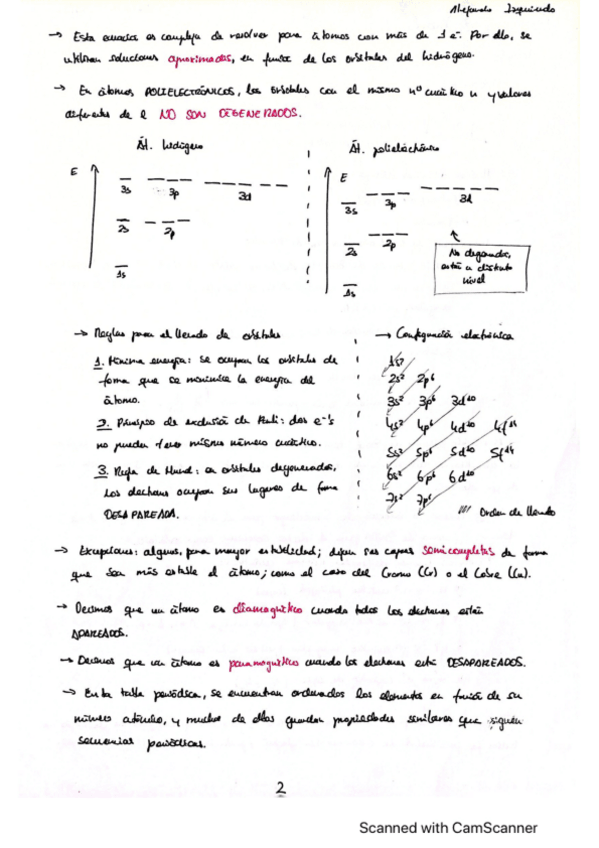 Alejandro Izquierdo
→ Esta ecuación es compleja de resolver para átomos con más de 1 e-. Por ello, se
utilizan soluciones aproximadas, en función de los orbitales del hidrógeno.
→ En átomos POLIELECTRÓNICOS, los orbitales con el mismo nº cuántico n y valores
diferentes de l NO SON DEGENERADOS.
Át. hidrógeno
Át. polielectrónico
E
3s 3p 3d
2s 2p
1s
E
3s 3p 3d
2s 2p
1s
No degenerados,
están a distinto
nivel
→ Reglas para el llenado de orbitales
1. Mínima energía: se ocupan los orbitales de
forma que se minimice la energía del
átomo.
2. Principio de exclusión de Pauli: dos e-'s
no pueden tener mismo número cuántico.
3. Regla de Hund: en orbitales degenerados,
los electrones ocupan sus lugares de forma
DESAPAREADA.
→ Configuración electrónica
1s2
2s2 2p6
3s2 3p6 3d10
4s2 4p6 4d10 4f14
5s2 5p6 5d10 5f14
6s2 6p6 6d10
7s2 7p6
Orden de llenado
→ Excepciones: algunos, para mayor estabilidad; dejan sus capas semicompletas de forma
que sea más estable el átomo; como el caso del Cromo (Cr) o el Cobre (Cu).
→ Decimos que un átomo es diamagnético cuando todos los electrones están
APAREADOS.
→ Decimos que un átomo es paramagnético cuando los electrones está DESAPAREADOS.
→ En la tabla periódica, se encuentran ordenados los elementos en función de su
número atómico, y muchos de ellos guardan propiedades similares que siguen
secuencias periódicas.
2
Scanned with CamScanner